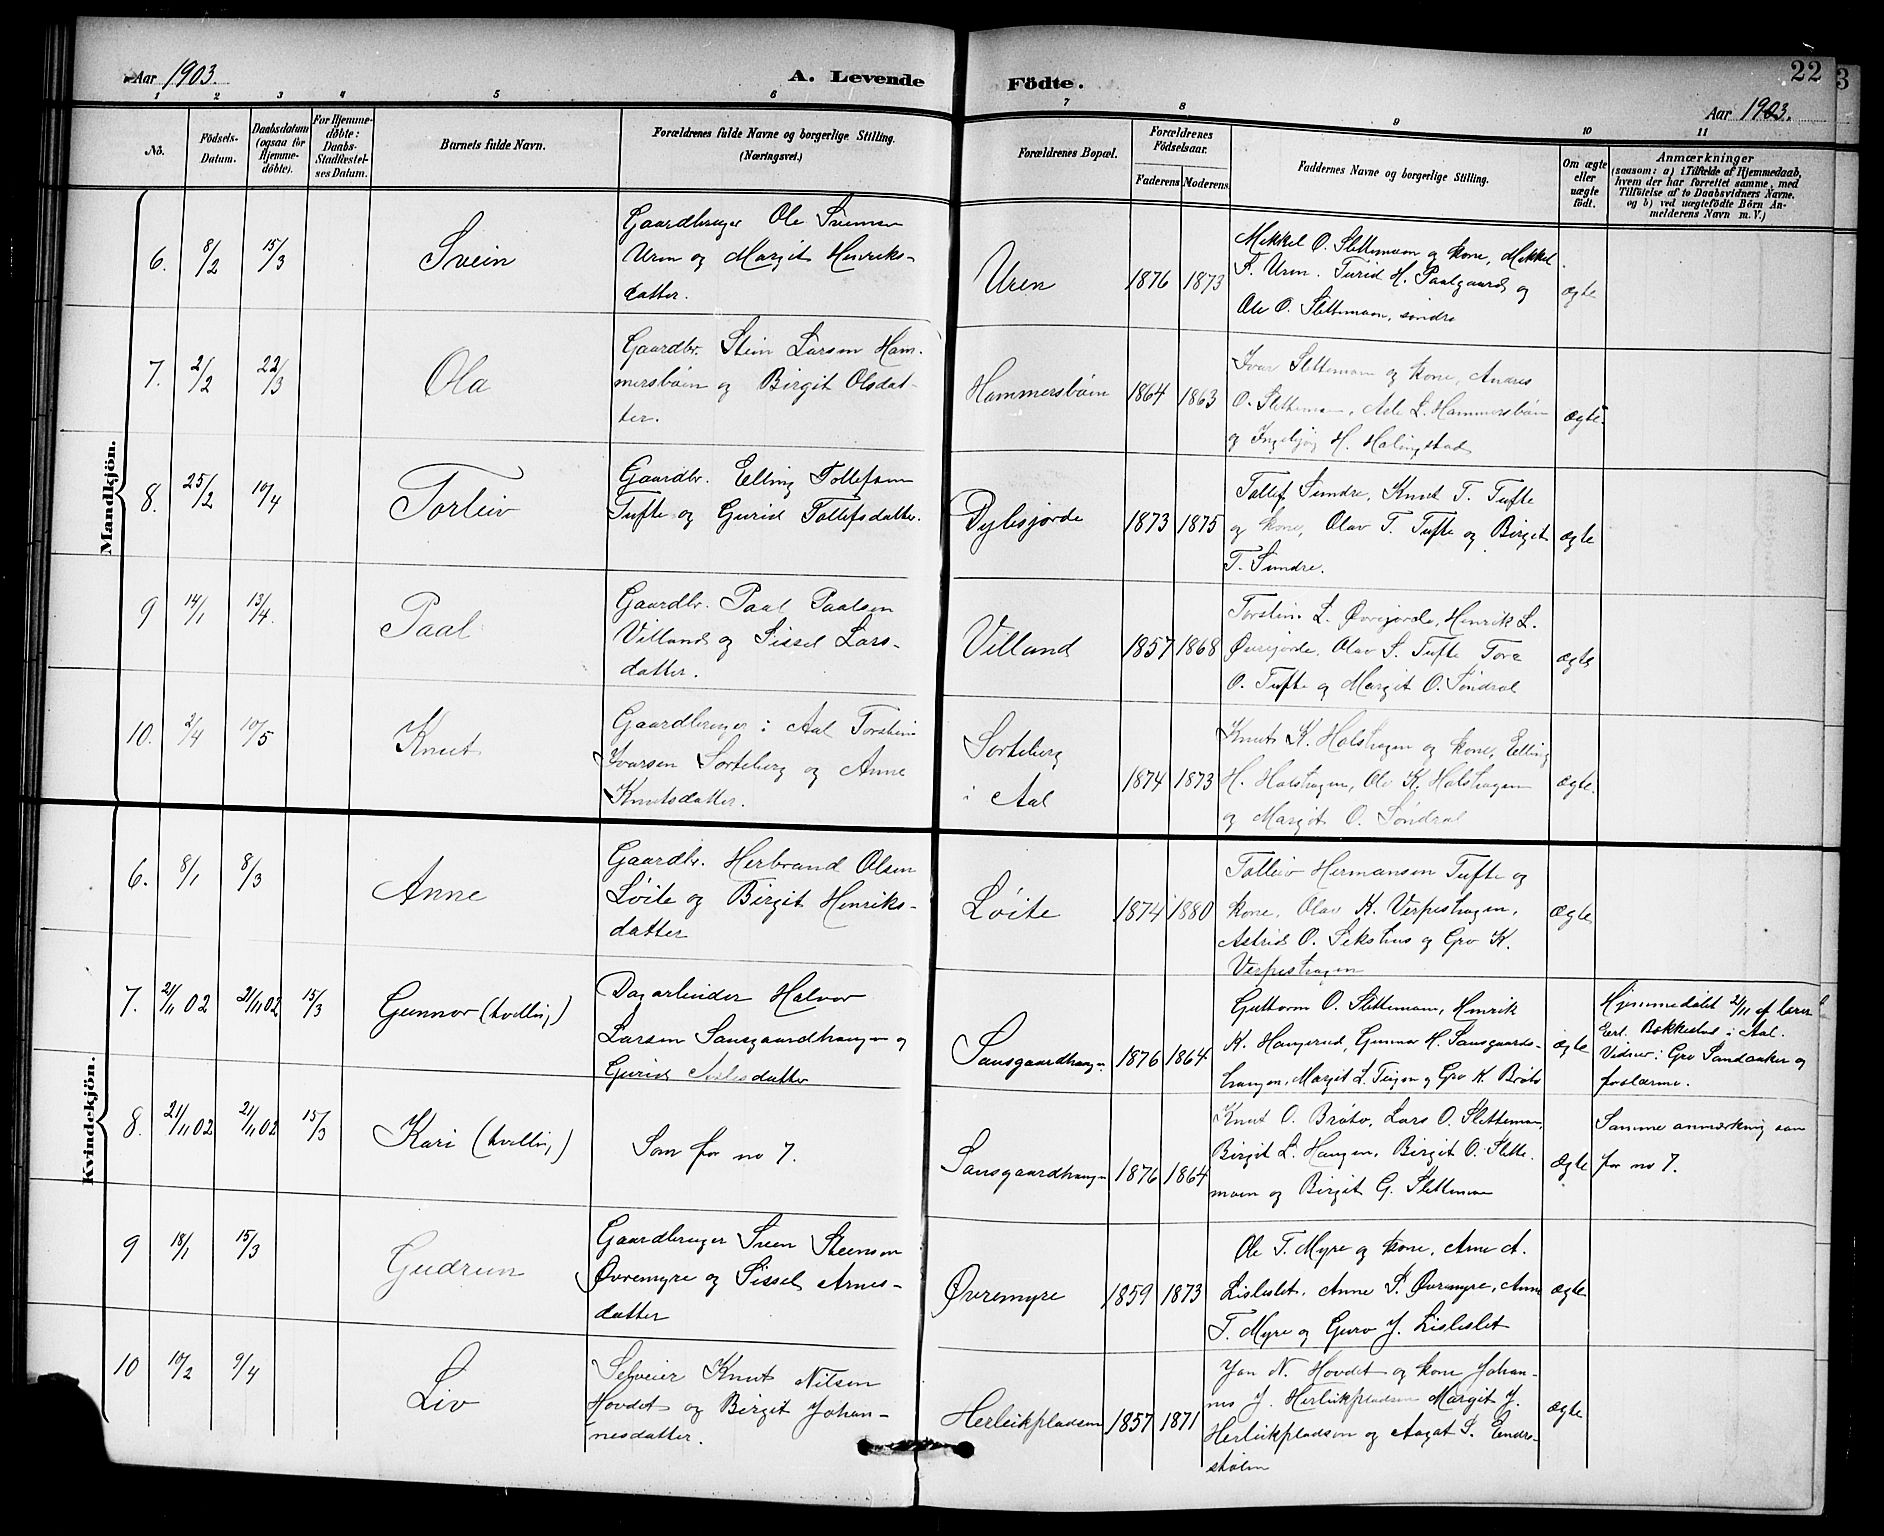 Aar 1903.
A. Levende
Födte.
22
3
Aar 1903.
1 2 3 4 5 6 7 8 9 10 11
No.
Födsels-
Datum.
Daabsdatum
(ogsaa for
Hjemme-
döbte).
For Hjemme-
döbte:
Daabs-
Stadfæstel-
ses Datum.
Barnets fulde Navn.
Forældrenes fulde Navne og borgerlige Stilling.
(Næringsvei.)
Forældrenes Bopæl.
Forældrenes
Födselsaar.
Faderens Moderens
Faddernes Navne og borgerlige Stilling.
Om ægte
eller
uægte
födt.
Anmærkninger
(saasom: a) i Tilfælde af Hjemmedaab,
hvem der har forrettet samme, med
Tilföielse af to Daabsvidners Navne.
og b) ved uægtefödte Börn An-
melderens Navn m. V.)
Mandkjön.
6. 8/2 15/3
Svein
Gaardbruger Ole
Uren og Margit Henriks-
datter.
Uren
1876 1873
Mikkel O. Slettemoen og kone, Mikkel
S. Uren. Turid H. Paalgaard og
Ole O. Slettemoen, søndre
ægte
7. 2/2 22/3
Ola
Gaardbr. Stein Larsen Ham-
mersbøen og Birgit Olsdat-
ter.
Hammersbøen
1864 1863
Ivar Slettemoen og kone,
O. Slettemoen, L. Hammersbøen
og H. Halingstad
ægte.
8. 25/2 10/4
Torleiv
Gaardbr. Elling Tollefsen
Tufte og Gurid Tollefsdatter.
1873 1875
Tollef Sundre, Knut T. Tufte
og kone, Olav T. Tufte og Birgit
T. Sundre.
ægte
9 14/1 13/4.
Paal
Gaardbr. Paal Paalsen
Villand og Sissel Lars-
datter.
Villand
1857 1868
Torstein L. Øvrejorde, Henrik L.
Øvrejorde, Olav S. Tufte Tore
O. Tufte og Margit O. Søndral
ægte
10. 2/4 10/5
Knut
Gaardbruger i Aal Torstein
Ivarsen Sorteberg og Anne
Knutsdatter.
Sorteberg
i Aal
1874 1873
Knut K. Holshagen og kone, Elling
H. Holshagen, Ole K. Holshagen
og Margit O. Søndral
ægte.
Kvindekjön.
6. 8/1 8/3
Anne
Gaardbr. Herbrand Olsen
Løite og Birgit Henriks-
datter
Løite
1874 1880
Tolleiv Hermansen Tufte og
kone, Olav K. Verpeshagen,
Astrid O. Sekshus og Gro K.
Verpeshagen
ægte
7. 21/11 02 21/11 02 15/3
Gunnor (tvilling)
Dagarbeider Halvor
Larsen Sansgaardhaugen og
Gurid
Sansgaardhaugen
1876 1864
Guttorm O. Slettemoen, Henrik
K. Haugerud, Gunnar H. Sansgaards-
haugen, Margit L. Teigen og Gro K. Brøto
ægte
Hjemmedøbt 21/11 af lærer
Erl. Bakkestus i Aal.
Vidner: Gro Sandaaker og
forældrene.
8. 21/11 02 21/11 02 15/3
Kari (tvilling)
Som for no 7.
Sansgaardhaugen
1876 1864
Knut O. Brøto, Lars O. Slettemoen,
Birgit L. Haugen, Birgit O. Slette-
moen og Birgit G. Slettemoen
ægte
Samme anmærkning som
for no 7.
9 18/1 15/3
Gudrun
Gaardbruger Sven Steensen
Øvremyre og Sissel Arnes-
datter
Øvremyre
1859 1873
Ole T. Myre og kone, Arne A.
Lislelet, Anne S. Øvremyre, Anne
T. Myre og Guro J. Lislelet
ægte
10 10/2 9/4
Liv
Selveier Knut Nilsen
Hovdet og Birgit Johan-
nesdatter.
Herleikpladsen
1857 1871
Jon N. Hovdet og kone Johan-
nes J. Herleikpladsen Margit J.
Herleikpladsen og Aagot S. Endre-
stølen
ægte